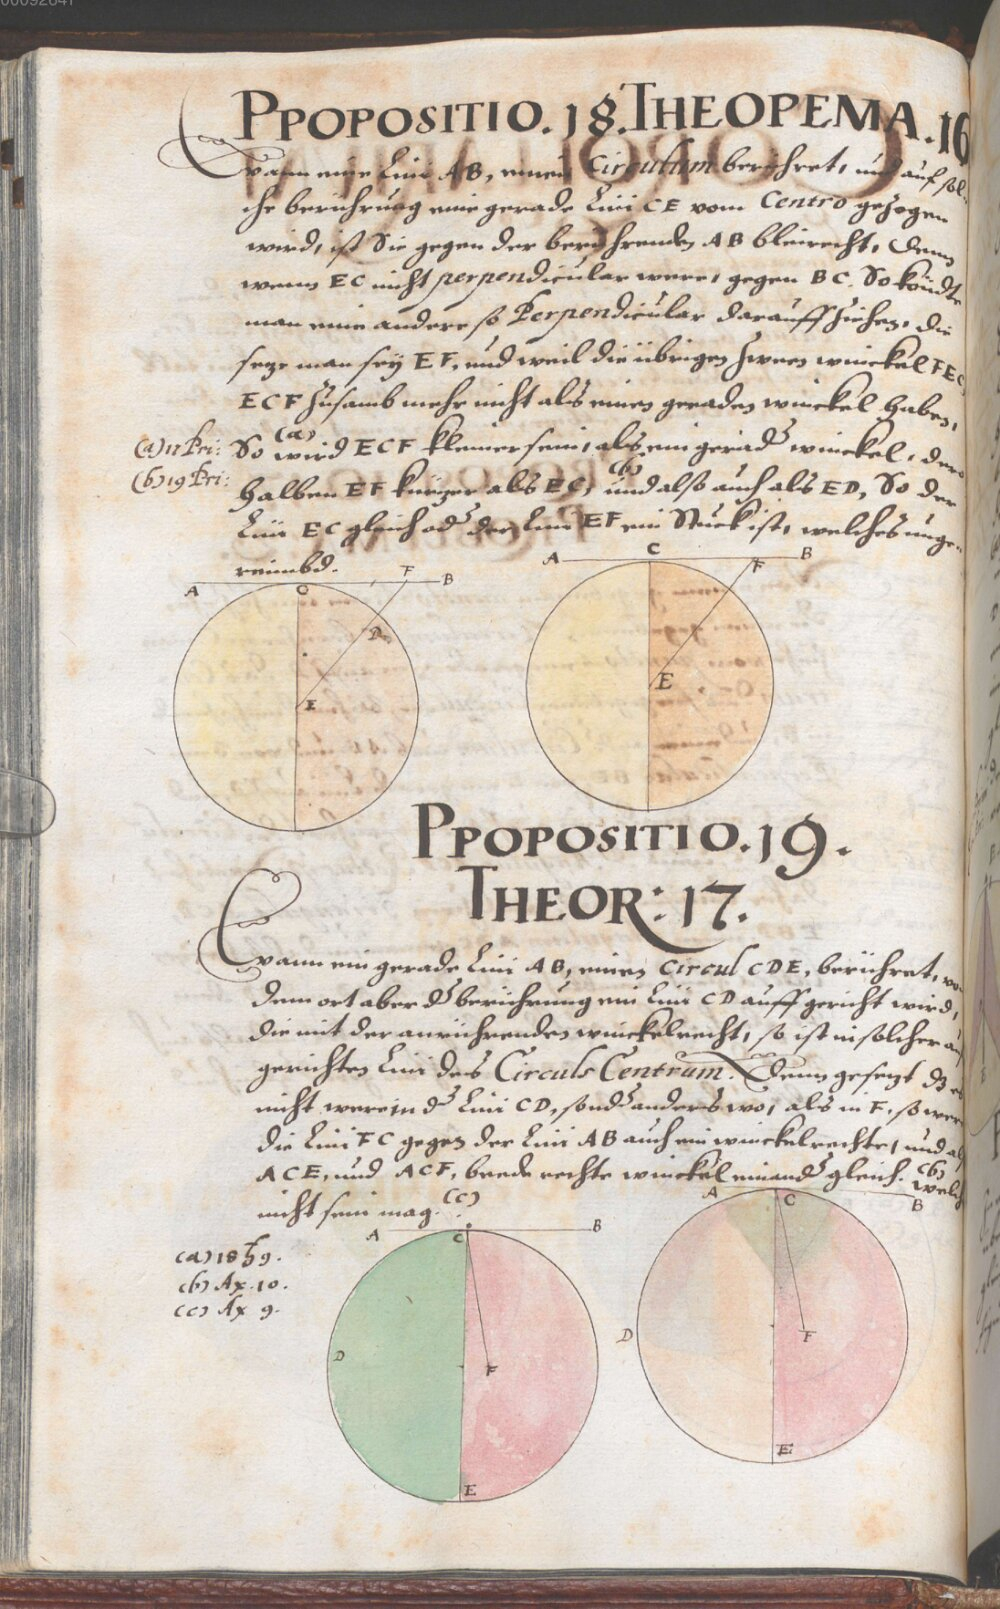 00092647
PROPOSITIO. 18. THEOREMA. 16
Wann eine Lini AB, einen Circulum berühret, und auf sol-
che berührung eine gerade Lini CE vom Centro gezogen
wird, ist Sie gegen der berührenden AB bleirecht, denn
wenn EC nicht perpendicular were, gegen BC. So köndte
man eine andere so Perpendicular darauff ziehen, die
seze man sey EF, und weil die übrigen zween winckel FEC
ECF zusamb mehr nicht als einen geraden winckel haben,
(a) 17 Pri: So (a) wird ECF kleiner sein, als ein gerad winckel, dero
(b) 19 Pri: halben EF kürzer als EC, (b) und also auch als ED, So der
Lini EC gleich od der Lini EF ein Stuck ist, welches unge-
reimbd.
A C F B
D
E
A C F B
E
PROPOSITIO. 19.
THEOR: 17.
Wann ein gerade Lini AB, einen Circul CDE, berühret,
dem ort aber d berührung ein Lini CD auffgericht wird,
die mit der anrührenden winckelrecht, so ist in solcher
gerichten Lini des Circuls Centrum. Denn gesezt dz es
nicht were in d Lini CD, sond anderswo, als in F, so were
die Lini FC gegen der Lini AB auch ein winckelrechte, und
ACE, und ACF, beede rechte winckel einand gleich. (b) welch
nicht sein mag. (c)
(a) 18 h 9.
(b) Ax. 10.
(c) Ax 9.
A C B
D
F
E
A C B
D
F
E